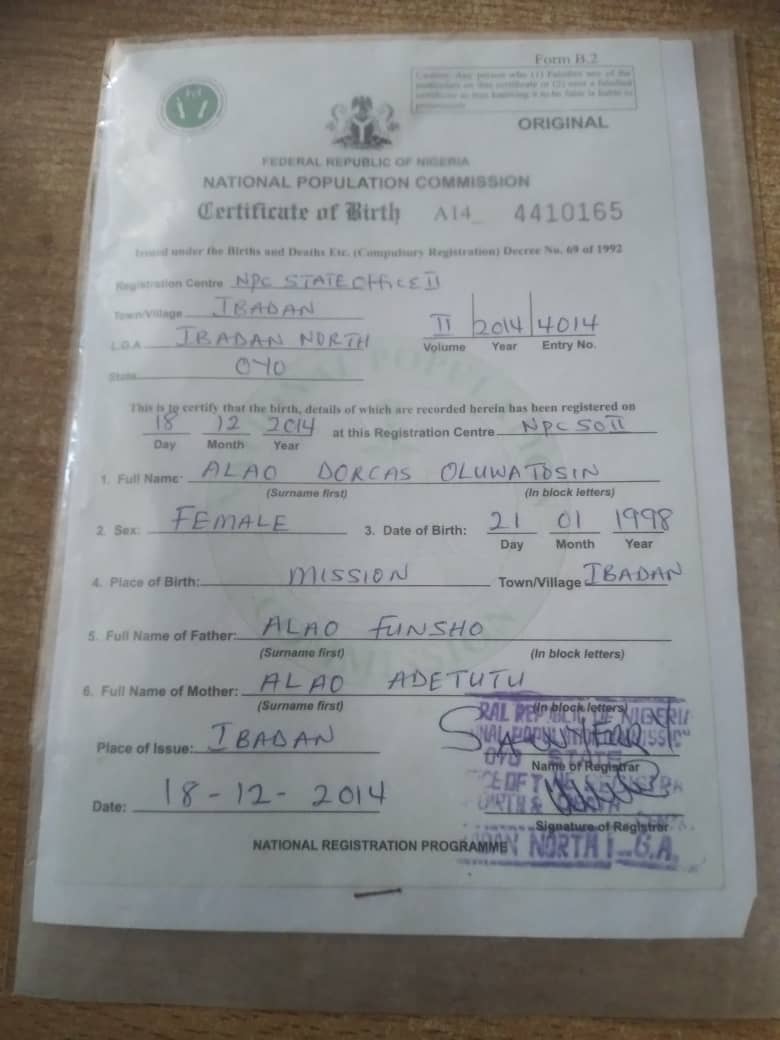 Form B.2
Caution: Any person who (1) Falsifies any of the
particulars on this certificate or (2) uses a falsified
certificate as true knowing it to be false is liable to
ORIGINAL
FEDERAL REPUBLIC OF NIGERIA
NATIONAL POPULATION COMMISSION
Certificate of Birth A14_ 4410165
Issued under the Births and Deaths Etc. (Compulsory Registration) Decree No. 69 of 1992
Registration Centre NPC STATE OFFICE II
Town/Village IBADAN
L.G.A IBADAN NORTH
II 2014 4014
Volume Year Entry No.
State OYO
This is to certify that the birth, details of which are recorded herein has been registered on
18 12 2014 at this Registration Centre NPC SO II
Day Month Year
1. Full Name: ALAO DORCAS OLUWATOSIN
(Surname first) (In block letters)
2. Sex: FEMALE 3. Date of Birth: 21 01 1998
Day Month Year
4. Place of Birth: MISSION Town/Village IBADAN
5. Full Name of Father: ALAO FUNSHO
(Surname first) (In block letters)
6. Full Name of Mother: ALAO ADETUTU
(Surname first) (In block letters)
Place of Issue: IBADAN
Name of Registrar
Date: 18-12-2014
Signature of Registrar
NATIONAL REGISTRATION PROGRAMME